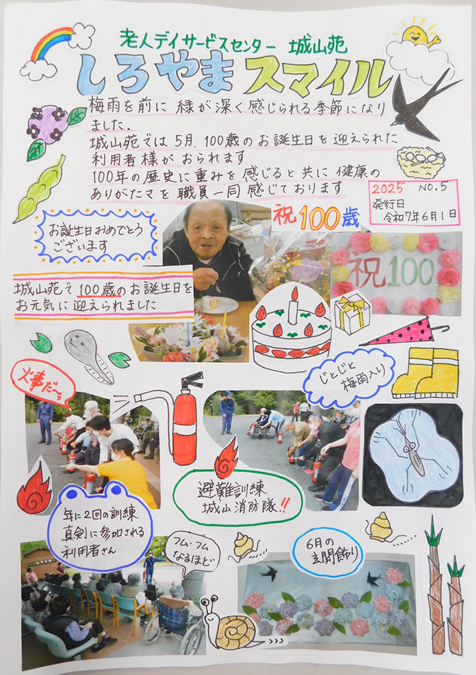 老人デイサービスセンター 城山苑
しろやま スマイル
梅雨を前に 緑が深く感じられる季節になり
ました.
城山苑では 5月, 100歳の お誕生日を 迎えられた
利用者様が おられます
100年の 歴史に重みを 感じると共に 健康の
ありがたさを 職員一同 感じております
2025 NO.5
発行日
令和7年6月1日
お誕生日おめでとう
ございます
祝100歳
祝100
城山苑で 100歳の お誕生日を
お元気に 迎えられました
じとじと
梅雨入り
火事だ〜っ
避難訓練
城山消防隊!!
年に2回の訓練
真剣に参加される
利用者さん
フム・フム
なるほど
6月の
玄関飾り